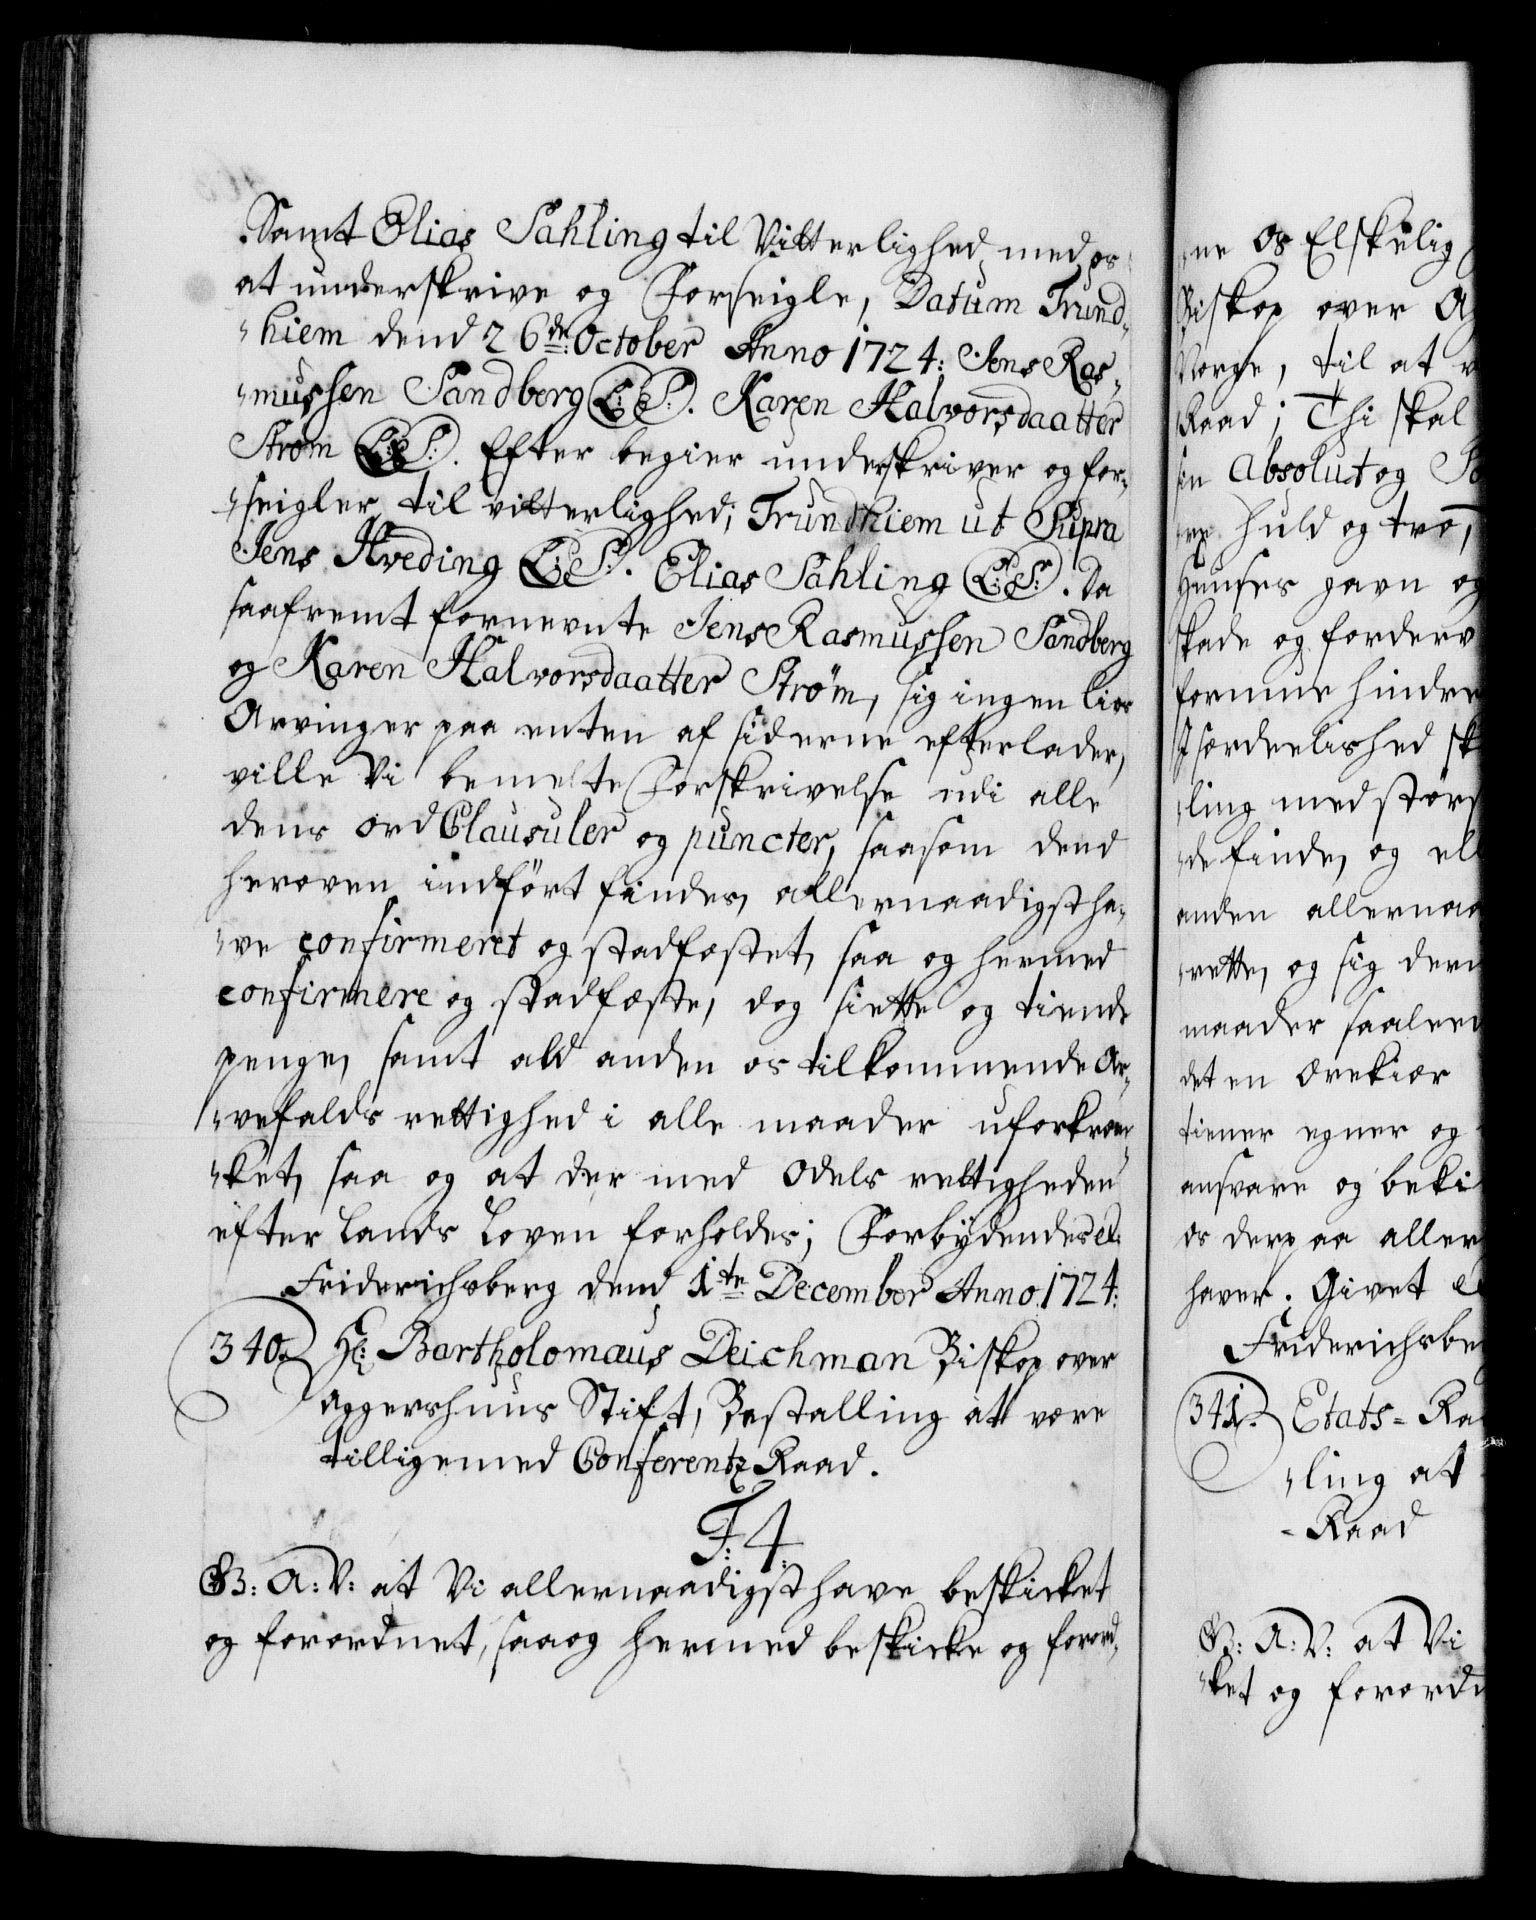 Samt Elias Sahling til Vitterlighed med os
at underskrive og Forseigle, Datum Trund-
hiem dend 26de: October Anno 1724: Jens Ras-
mussen Sandberg L:S:. Karen Halvorsdaatter
Strøm L:S:. Efter begier underskriver og for-
seigler til vitterlighed; Trundhiem ut Supra
Jens Hveding L:S:. Elias Sahling L:S:. Da
saafremt fornevnte Jens Rasmussen Sandberg
og Karen Halvorsdaatter Strøm, sig ingen lifs
Arvinger paa enten af siderne efterlader,
ville Vi bemelte Forskrivelse udi alle
dens ord Clausuler og puncter, saasom dend
heroven indført findes, allernaadigst ha-
ve confirmeret og stadfæstet, saa og hermed
confirmere og stadfæste, dog siette og tiende
penge, samt ald anden os tilkommende Ar-
vefalds rettighed i alle maader uforkræn-
ket, saa og at der med Odels rettigheden
efter Lands Loven forholdes; Forbydendes et:
Friderichsberg dend 1te December Anno 1724:
340. Hr: Bartholomæus Deichman Biskop over
Aggershuus Stift, Bestalling at være
tilligemed Conferentz Raad.
F: 4:
G: A: V: at Vi allernaadigst have beskicket
og forordnet, saa og hermed beskicke og forord-
ne Os Elskelig
Biskop over A
Norge, til at v
Raad; Thi skal
sin absolut og So
re huld og tro,
Huuses gavn og
skade og forderv
formue hindre
Jsærdeelished sk
ling med størs
de finde, og el
anden allernaa
rette, og sig dern
maader saaleed
det en ærekiær
tiener egner og
ansvare og beki
os derpaa aller
haver. Givet e
Friderichsbe
341. Etats-Ra
ling at
Raad
G: A: V: at Vi
ket og forordn